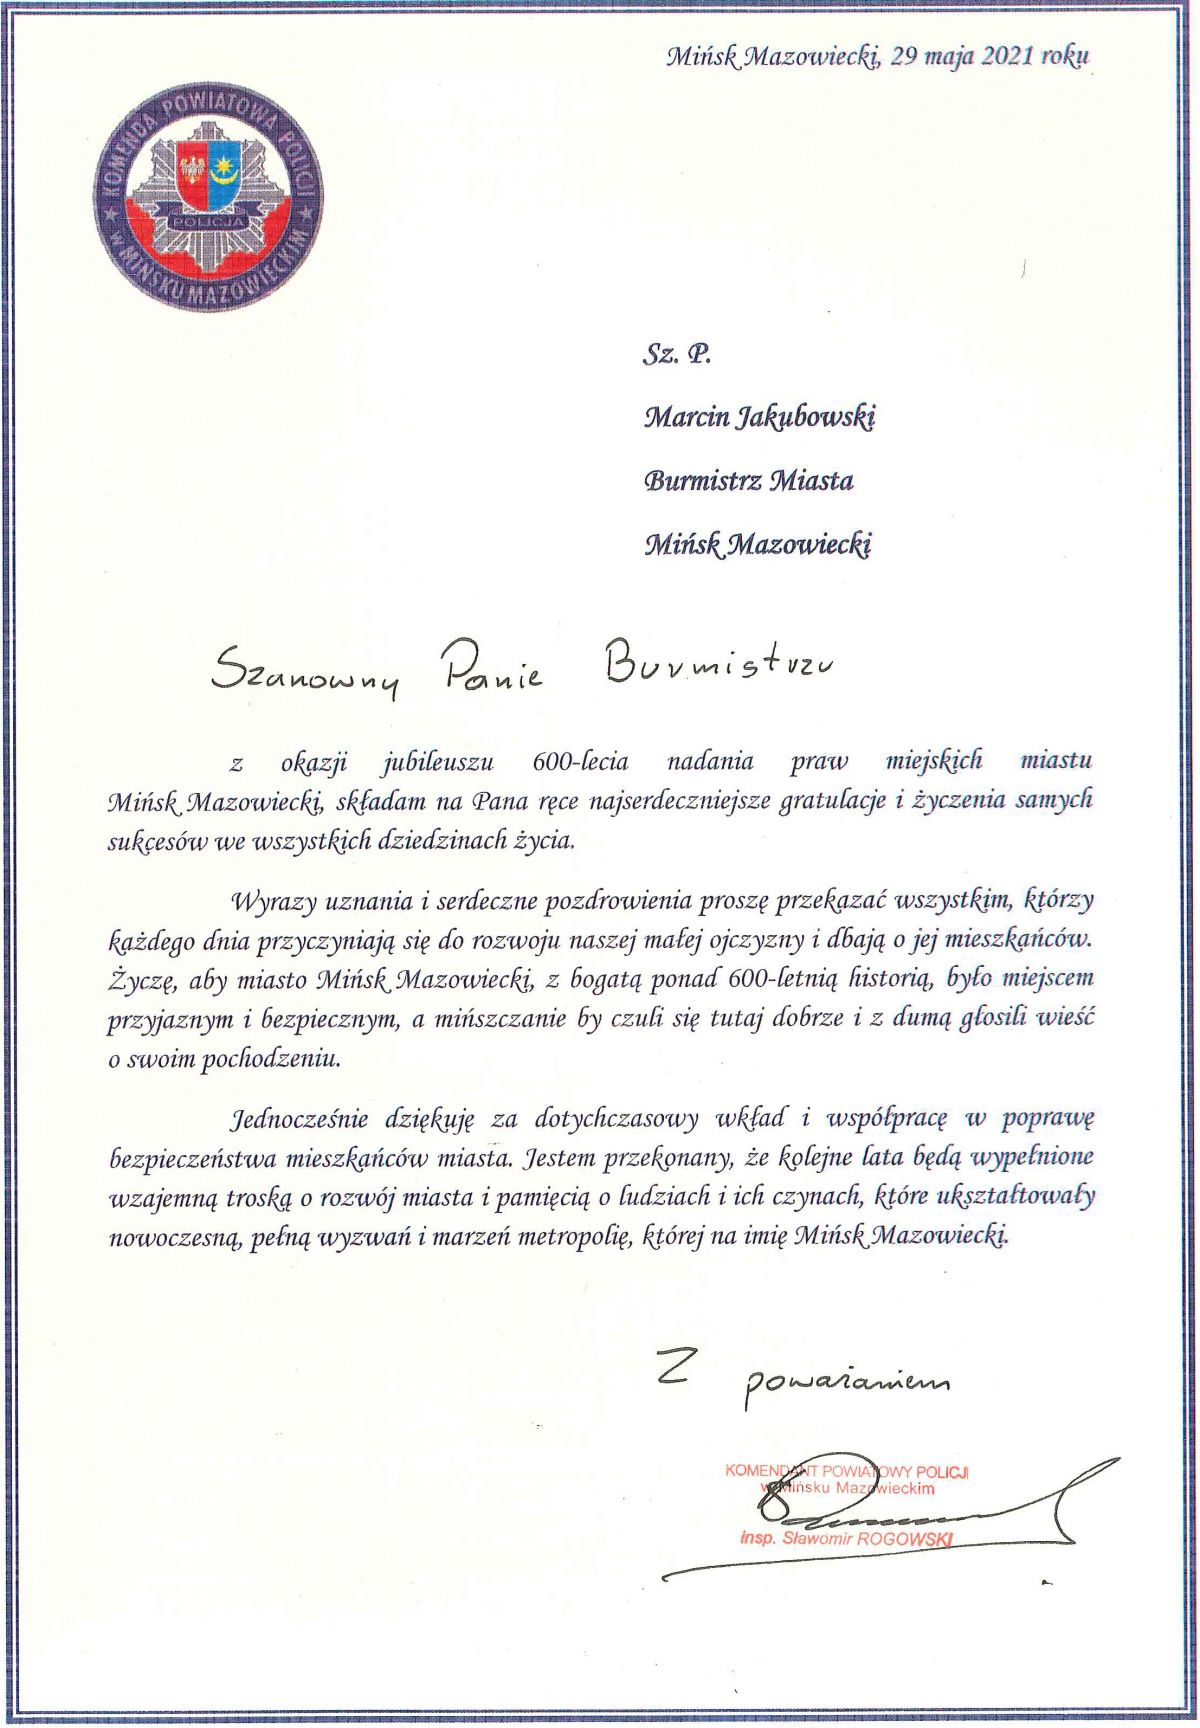 Mińsk Mazowiecki, 29 maja 2021 roku
KOMENDA POWIATOWA POLICJI
POLICJA
w MIŃSKU MAZOWIECKIM
Sz. P.
Marcin Jakubowski
Burmistrz Miasta
Mińsk Mazowiecki
Szanowny Panie Burmistrzu
z okazji jubileuszu 600-lecia nadania praw miejskich miastu
Mińsk Mazowiecki, składam na Pana ręce najserdeczniejsze gratulacje i życzenia samych
sukcesów we wszystkich dziedzinach życia.
Wyrazy uznania i serdeczne pozdrowienia proszę przekazać wszystkim, którzy
każdego dnia przyczyniają się do rozwoju naszej małej ojczyzny i dbają o jej mieszkańców.
Życzę, aby miasto Mińsk Mazowiecki, z bogatą ponad 600-letnią historią, było miejscem
przyjaznym i bezpiecznym, a mińszczanie by czuli się tutaj dobrze i z dumą głosili wieść
o swoim pochodzeniu.
Jednocześnie dziękuję za dotychczasowy wkład i współpracę w poprawę
bezpieczeństwa mieszkańców miasta. Jestem przekonany, że kolejne lata będą wypełnione
wzajemną troską o rozwój miasta i pamięcią o ludziach i ich czynach, które ukształtowały
nowoczesną, pełną wyzwań i marzeń metropolię, której na imię Mińsk Mazowiecki.
Z poważaniem
KOMENDANT POWIATOWY POLICJI
w Mińsku Mazowieckim
insp. Sławomir ROGOWSKI